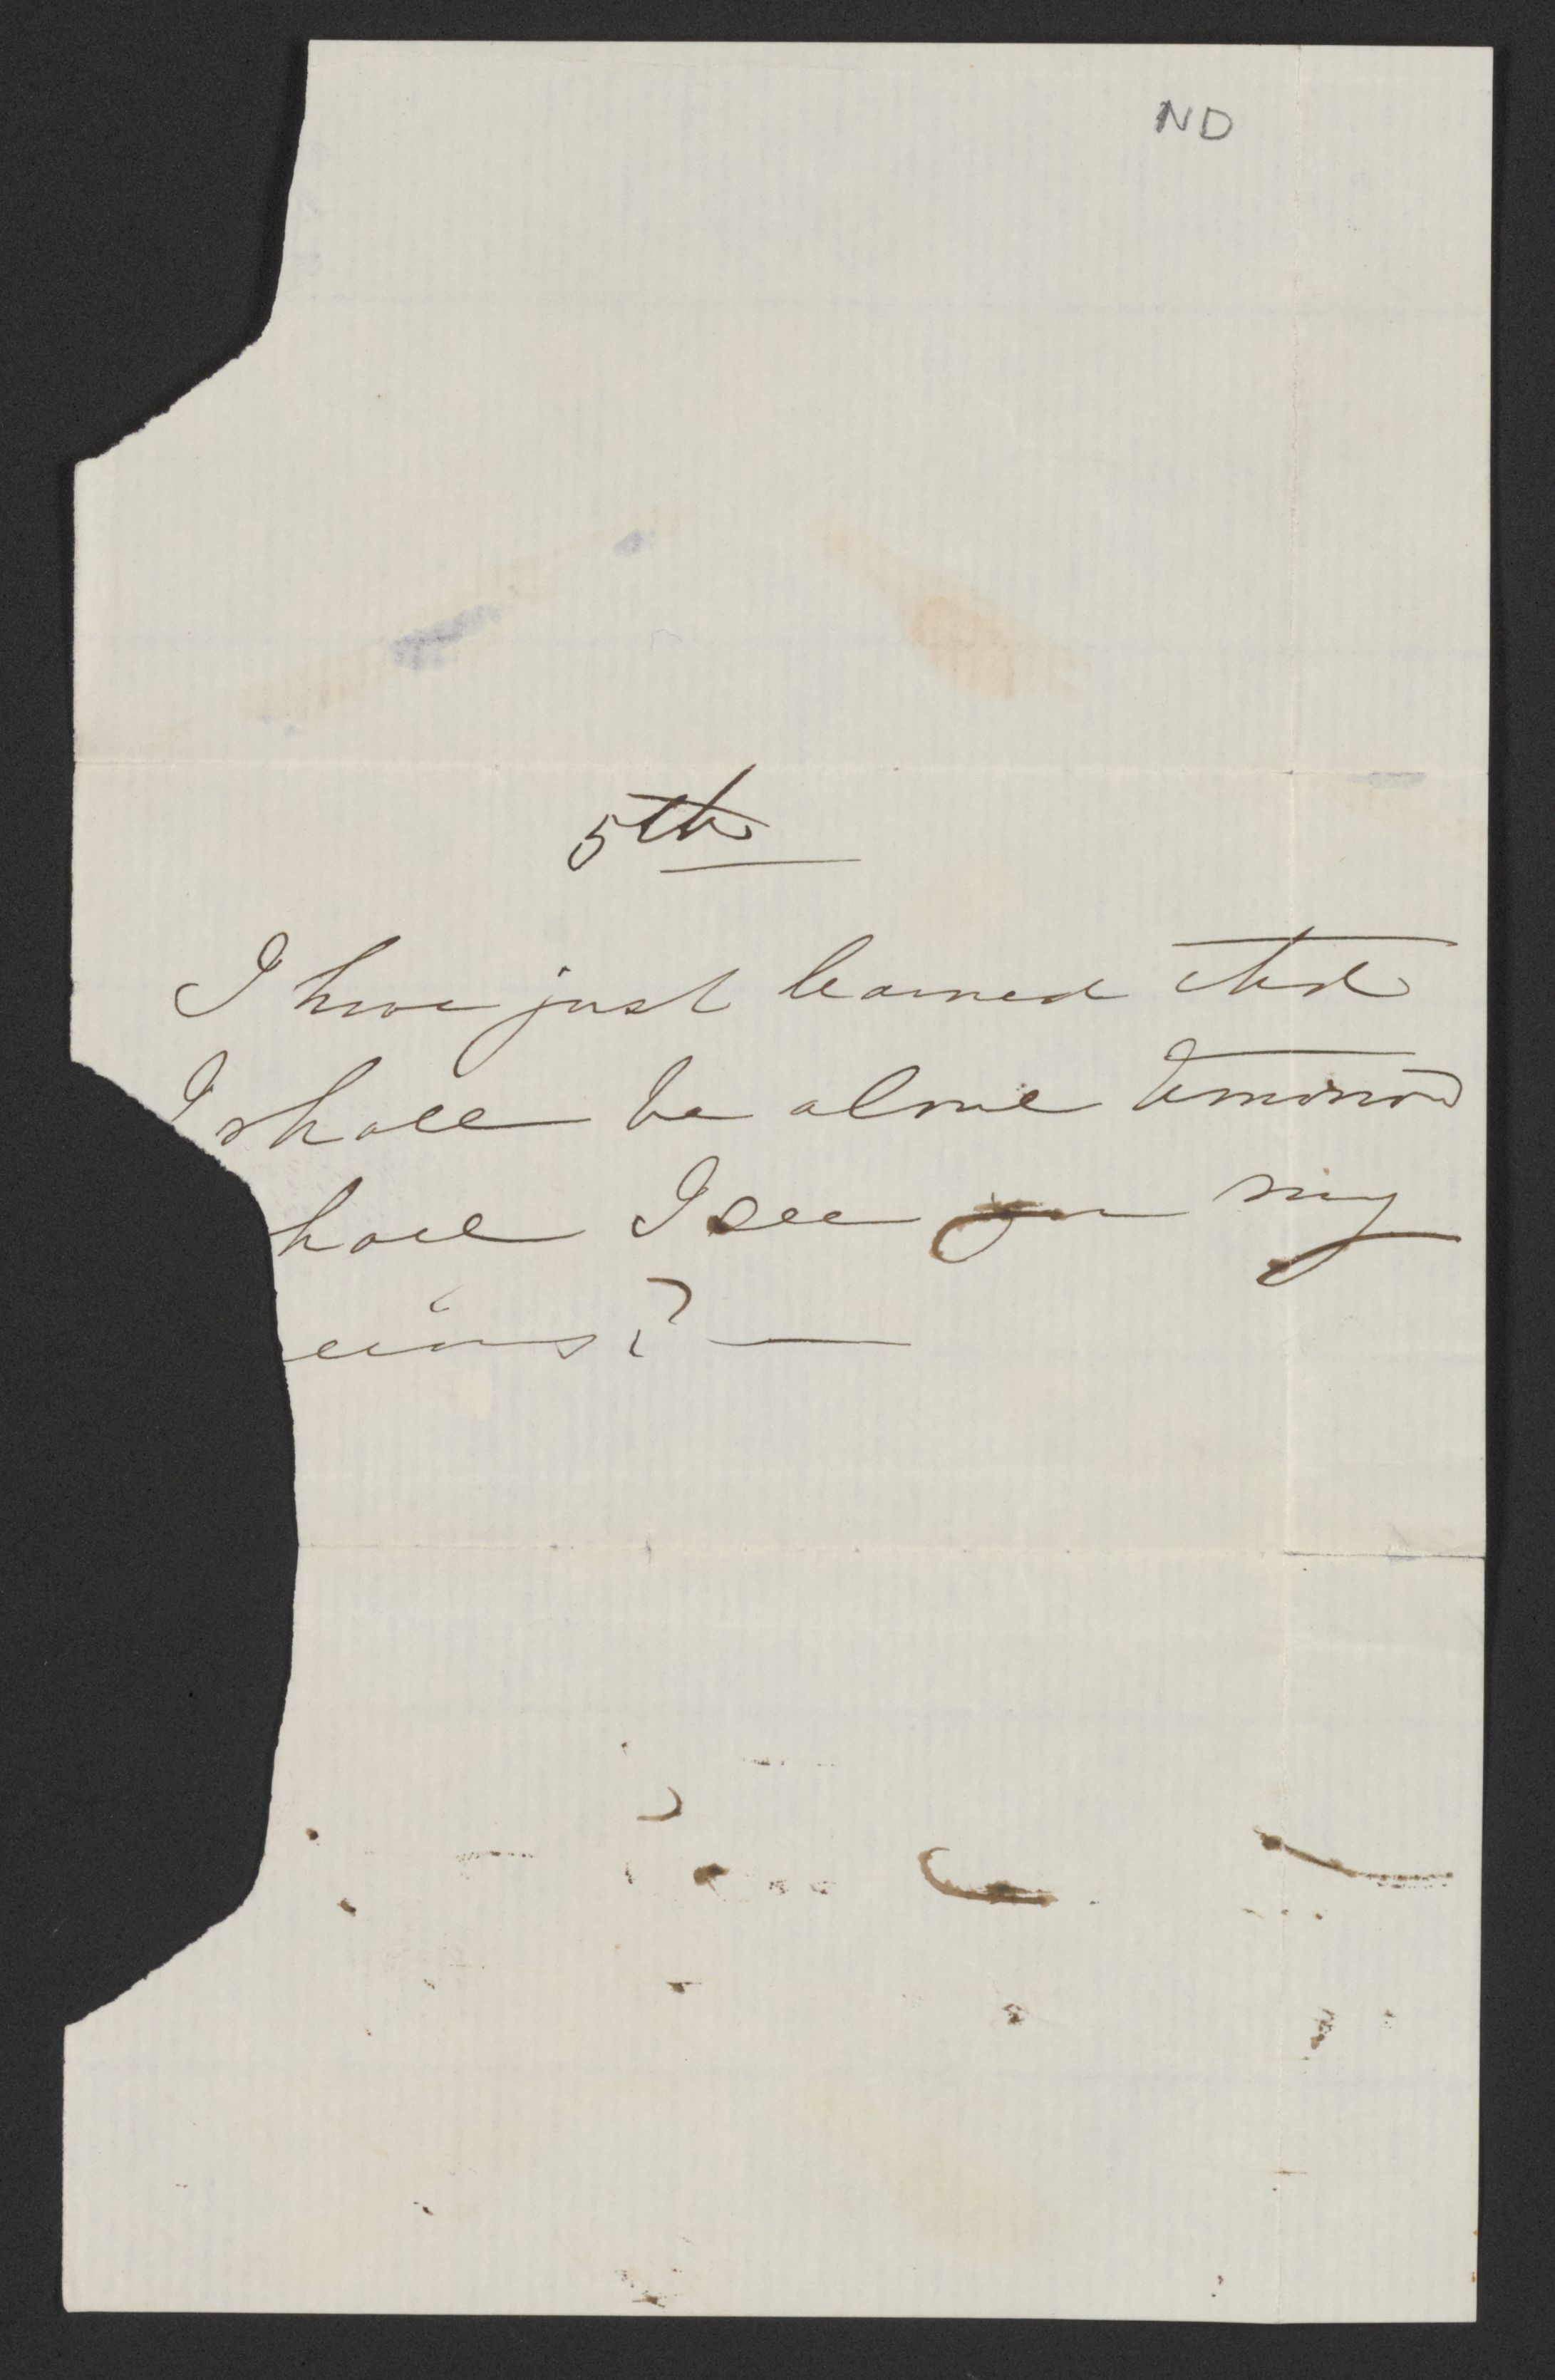 ND
5th
I have just learned that
I shall be alone tomorrow
hall I see you my